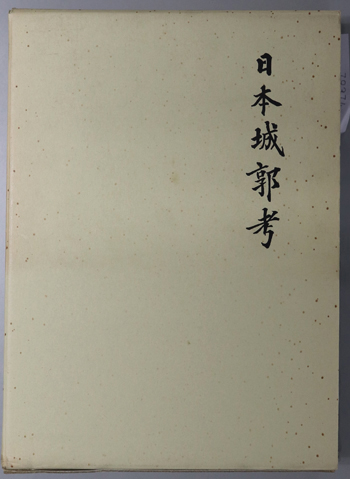 日本城郭考